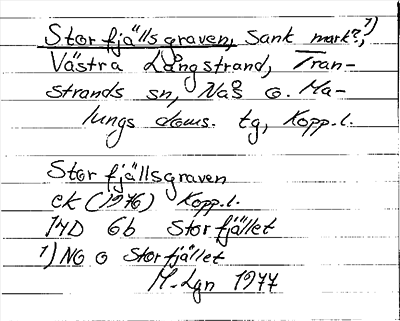 Storfjällsgraven, sank mark?,¹)
Västra Långstrand, Tran-
strands sn, Nås o. Ma-
lungs doms. tg, Kopp.l.
Storfjällsgraven
ek (1976) Kopp.l.
14D 6b Storfjället
¹) NO o Storfjället
M-Lgn 1977